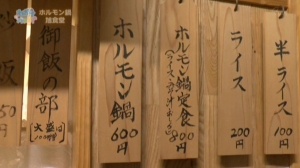 ホルモン鍋
旭食堂
半ライス
100円
ライス
200円
ホルモン鍋定食
800円
ホルモン鍋
600円
御飯の部
大盛は
飯
50
円